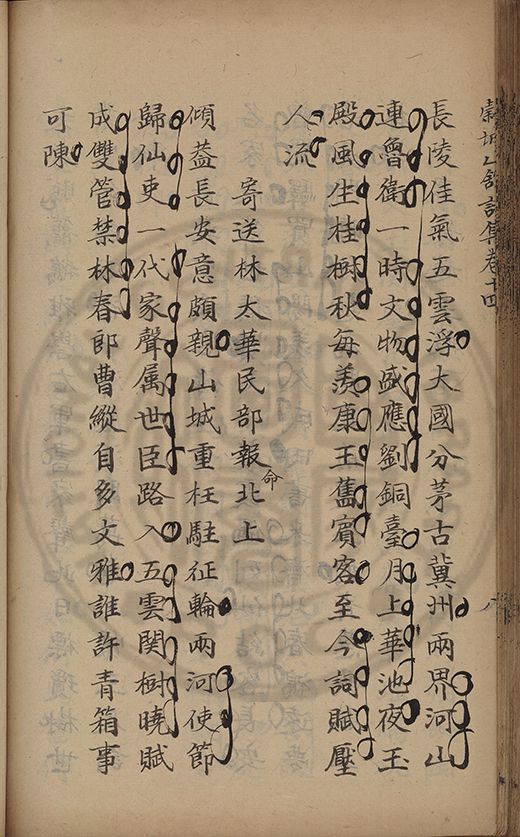 詩集卷十四
長陵佳氣五雲浮大國分茅古冀州兩界河山
連魯衛一時文物盛應劉銅臺月上華池夜玉
殿風生桂樹秋每羨康王舊賓客至今詞賦壓
人流
寄送林太華民部報命北上
傾葢長安意頗親山城重枉駐征輪兩河使節
歸仙吏一代家聲属世臣路入五雲関樹曉賦
成雙管禁林春郎曹縱自多文雅誰許青箱事
可陳
八